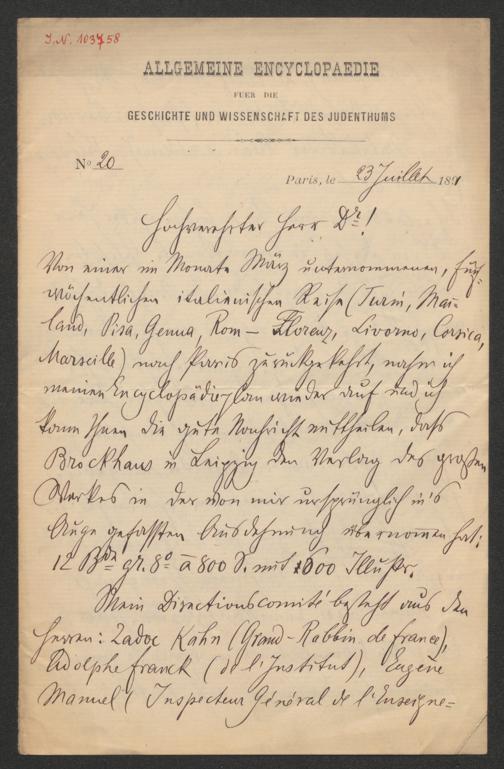 J.N. 103758
ALLGEMEINE ENCYCLOPAEDIE
FUER DIE
GESCHICHTE UND WISSENSCHAFT DES JUDENTHUMS
No 20
Paris, le 23 Juillet 1891
Hochverehrter Herr Dr.!
Von einer im Monate März unternommenen, fünf-
wöchentlichen italienischen Reise (Turin, Mai-
land, Pisa, Genua, Rom – Florenz, Livorno, Corsica,
Marseille) nach Paris zurückgekehrt, nahm ich
meinen Encyclopädieplan wieder auf und ich
kann Ihnen die gute Nachricht mittheilen, daß
Brockhaus in Leipzig den Verlag des großen
Werkes in der von mir ursprünglich in's
Auge gefassten Ausdehnung übernommen hat:
12 Bde gr. 8o à 800 S. mit Illustr.
Mein Directionscomité besteht aus den
Herren: Zadoc Kahn (Grand-Rabbin de France),
Adolphe Franck (de l'Institut), Eugène
Manuel (Inspecteur Général de l'Enseigne=